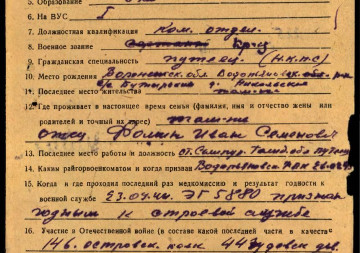 5. Образование
6. На ВУС
7. Должностная квалификация Ком. отдел.
8. Военное звание
9. Гражданская специальность путеец (Н.К.П.С)
10. Место рождения Воронежск. обл.
с/с Бутырский д. Никольское
11. Последнее место жительства там-же
12. Где проживает в настоящее время семья (фамилия, имя и отчество жены или
родителей и точный их адрес) там-же
отец Фомин Иван Семенович
13. Последнее место работы и должность ст.
14. Каким райгорвоенкоматом и когда призван РВК
15. Когда и где проходил последний раз медкомиссию и результат годности к
военной службе 23.04.44. ЭГ 5880 признан
годным к строевой службе
16. Участие в Отечественной войне (в составе какой последней части в качестве
146. полк 44